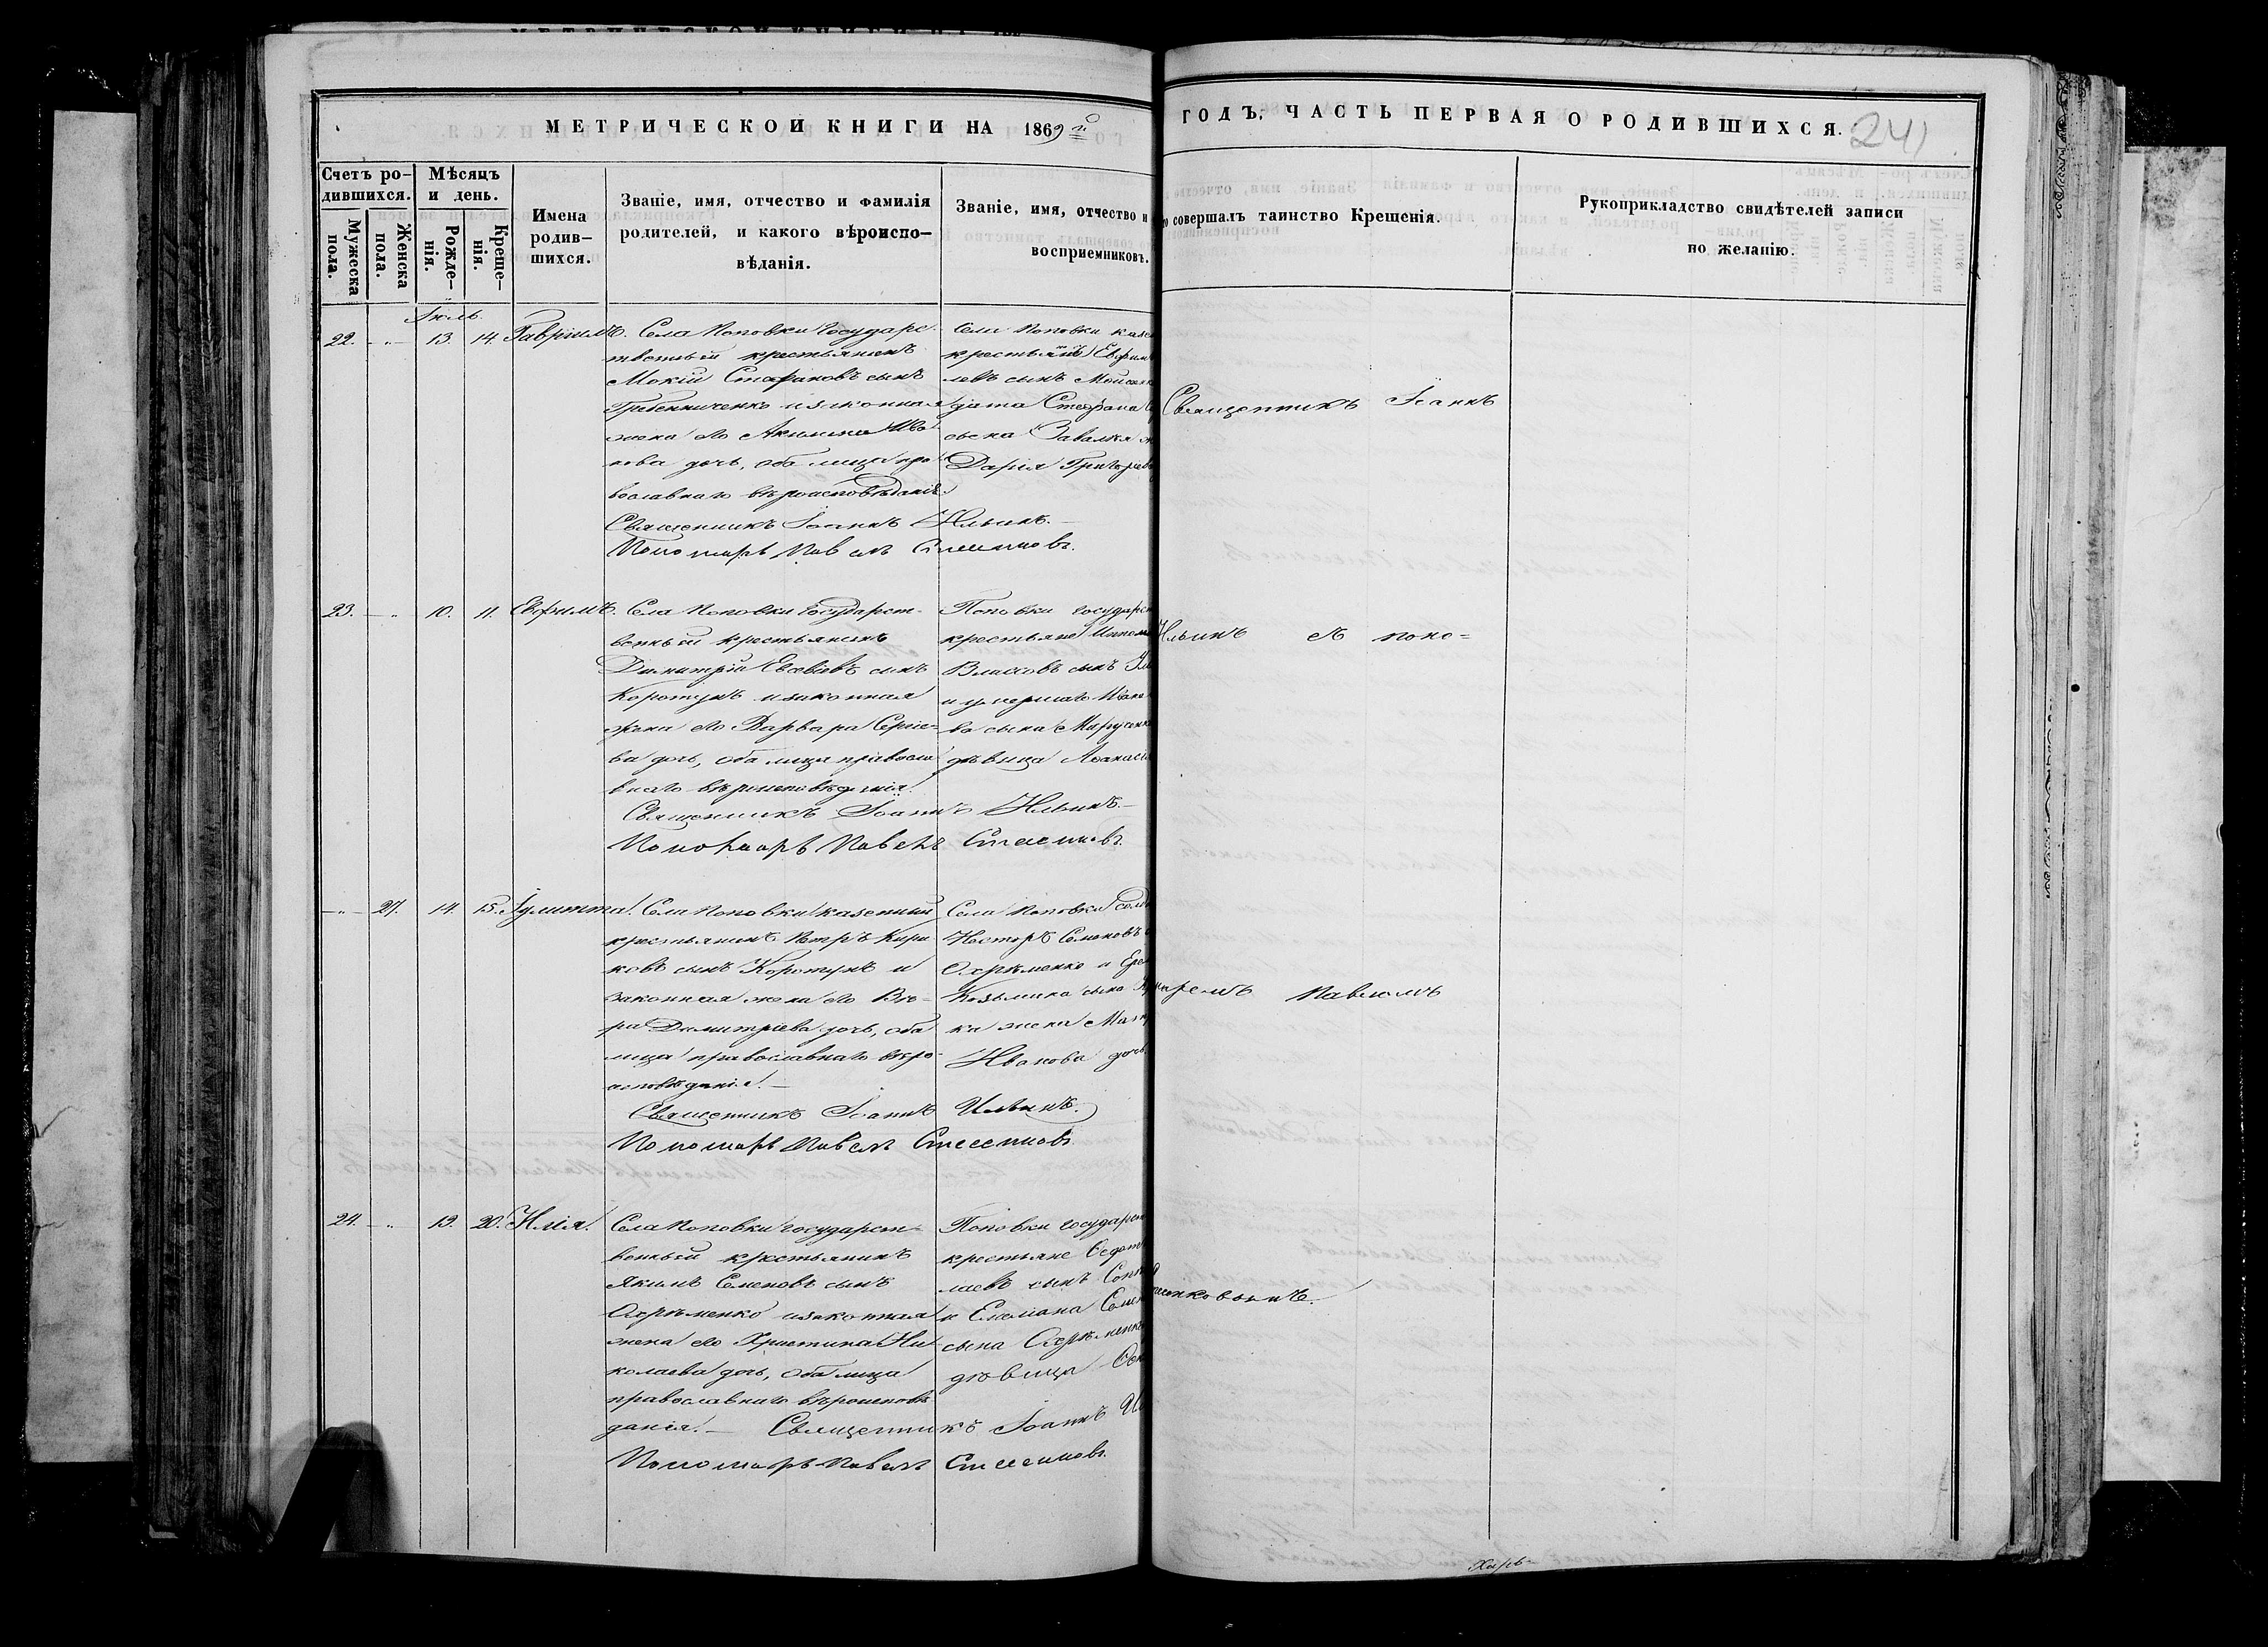 МЕТРИЧЕСКОЙ КНИГИ НА 1869й
ГОДЪ, ЧАСТЬ ПЕРВАЯ О РОДИВШИХСЯ.
241
Счетъ ро-
дившихся.
Мужеска
пола.
Женска
пола.
Мѣсяцъ
и день.
Рожде-
нія.
Креще-
нія.
Имена
родив-
шихся.
Званіе, имя, отчество и фамилія
родителей, и какого вѣроиспо-
вѣданія.
Званіе, имя, отчество и
восприемниковъ.
совершалъ таинство Крещенія.
Рукоприкладство свидѣтелей записи
по желанію.
Іюль
22. - " - 13. 14. Гавріилъ.
Села Поповки государс-
твенный крестьянинъ
Мокій Стефановъ сынъ
Гребенниченко и законная
жена его Акилина Ива-
нова дочь, оба лица пра-
вославнаго вѣроисповѣданія.
Священникъ Іоаннъ Ильинъ.
Пономарь Павелъ
Села Поповки казен
крестьянъ Евфим
левъ сынъ
дата Стефана
сына Завалія
Дарія Григорьев
23. - " 10. 11. Евфимъ.
Села Поповки государст-
венный крестьянинъ
Димитрій Евсевіевъ сынъ
Коротунъ и законная
жена его Варвара Сергіе-
ва дочь, оба лица правосла
внаго вѣроисповѣданія.
Священникъ Іоаннъ Ильинъ.
Пономарь Павелъ
Поповки государст
крестьяне
Власовъ сынъ
и умершаго Иван
ва сына
дѣвица Афанасі
- " - 27. 14. 15. Іулитта.
Села Поповки казенный
крестьянинъ Петръ Кири
ковъ сынъ Коротунъ и
законная жена его Вѣ-
ра Димитріева дочь, оба
лица православнаго вѣро-
исповѣданія.
Священникъ Іоаннъ Ильинъ.
Пономарь Павелъ
Села Поповки
Несторъ Семеновъ
Охрѣменко и
Козьмина сына
ка жена
Иванова дочь
24. - " 19. 20. Илія.
Села Поповки государст-
венный крестьянинъ
Якимъ Семеновъ сынъ
Охрѣменко и законная
жена его Христина Ни-
колаева дочь, оба лица
православнаго вѣроисповѣ
данія. - Священникъ Іоаннъ Ил
Пономарь Павелъ
Поповки государст
крестьяне Ѳедотъ
лаевъ сынъ
и Емеліана Семен
сына Охрѣменко
дѣвица
Священникъ Іоаннъ
Ильинъ съ поно=
маремъ Павломъ